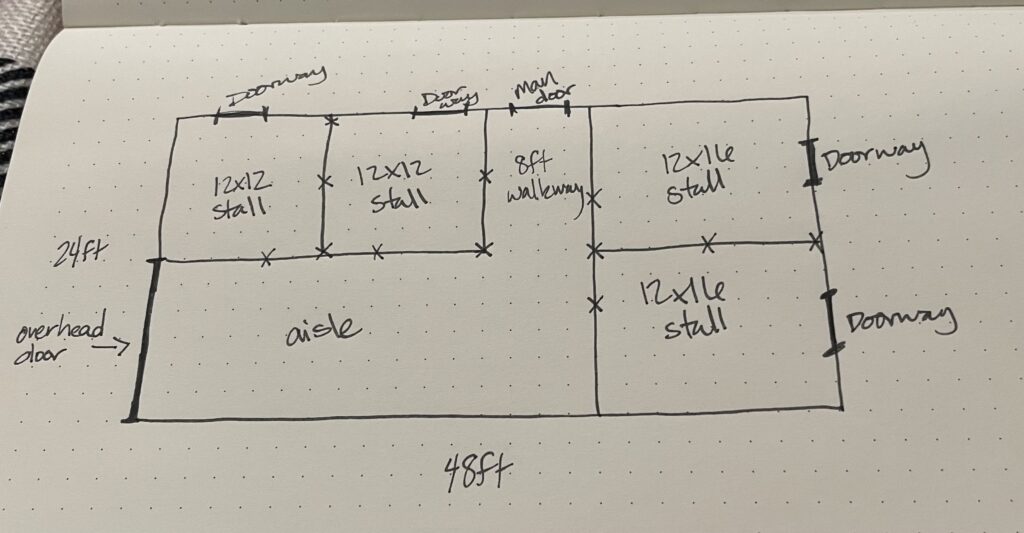 Doorway
Door
way
Man
door
12x12
stall
12x12
stall
8ft
walkway
12x16
stall
Doorway
24ft
12x16
stall
Doorway
overhead
door
aisle
48ft